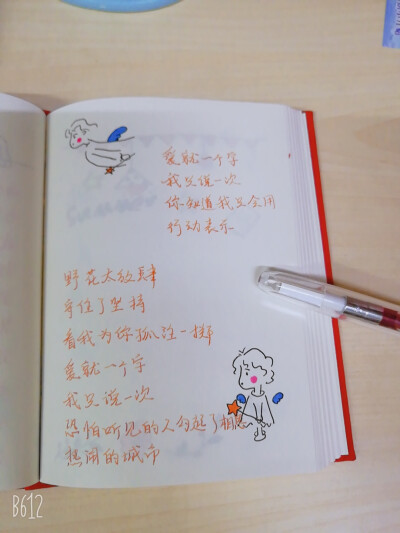 爱就一个字
我只说一次
你知道我只会用
行动表示
野花太放肆
守住了坚持
看我为你孤注一掷
爱就一个字
我只说一次
恐怕听见的人勾起了相思
热闹的城市
B612